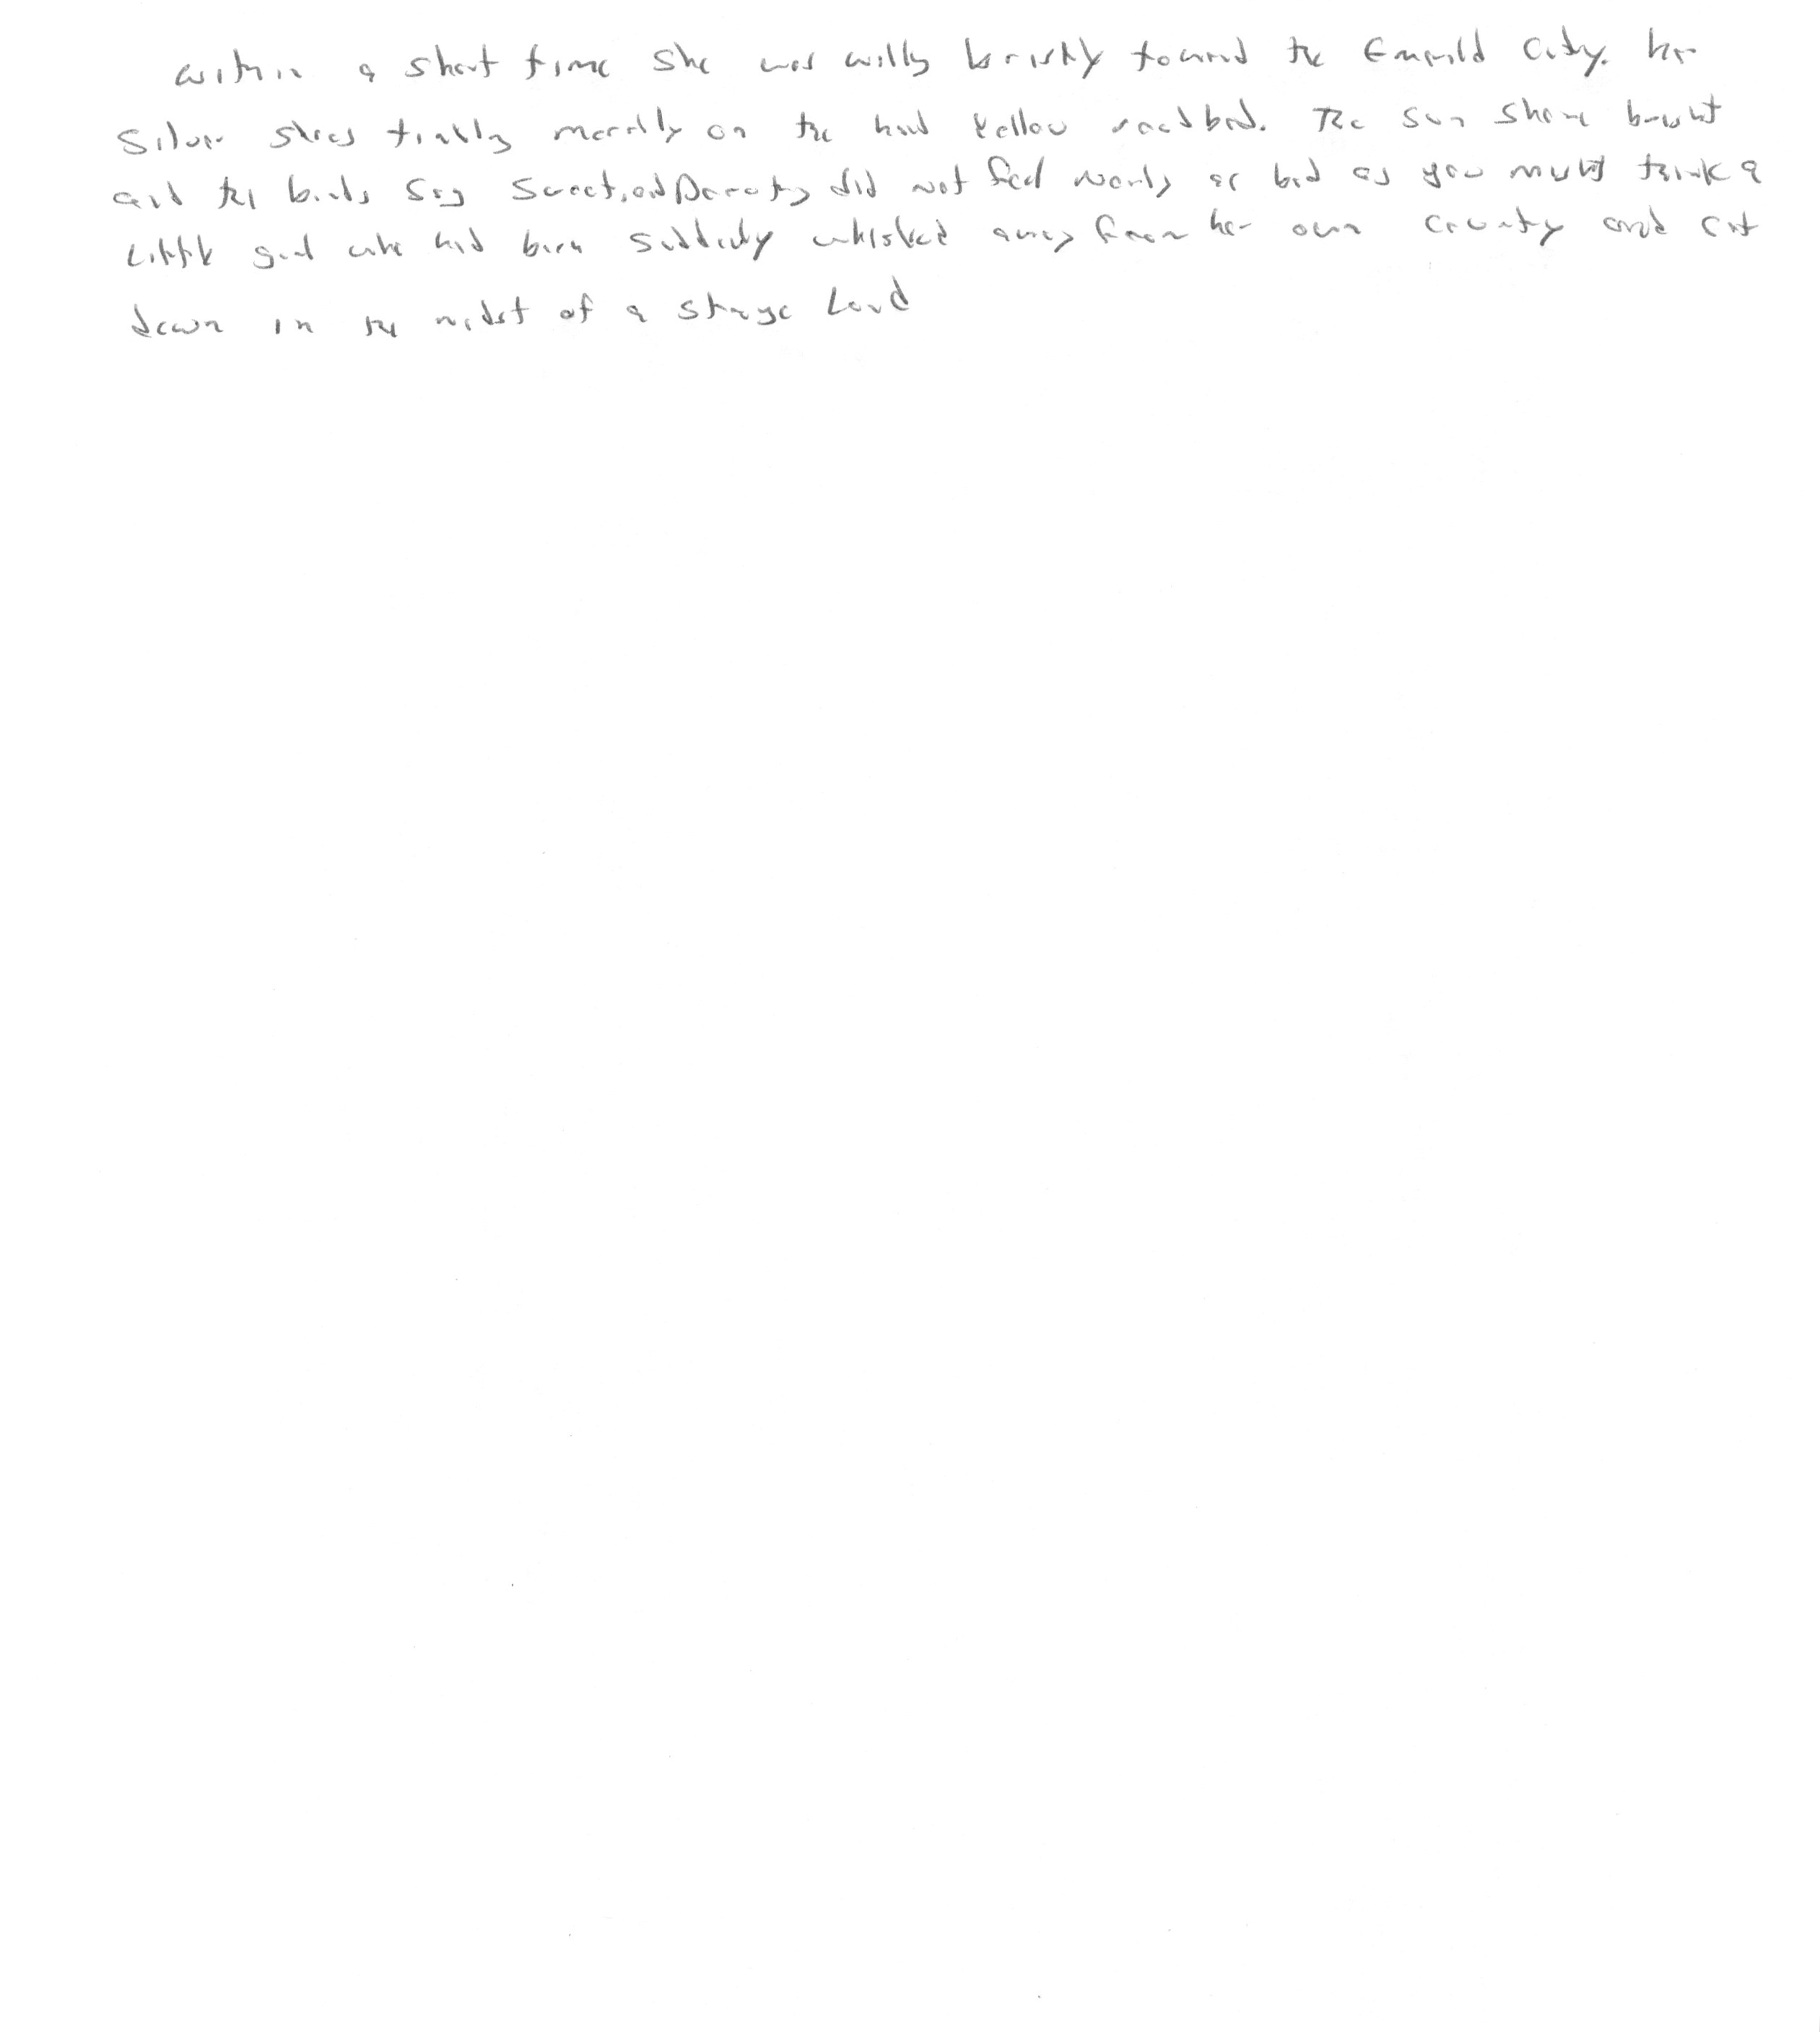 within a short time she was walking briskly toward the Emerald City. her
Silver shoes tinkling merrily on the hard Yellow roadbed. The sun shone bright
and the birds sang sweet, and Dorothy did not feel nearly as bad as you might think a
Little girl who had been suddenly whisked away from her own country and set
down in the midst of a strange Land